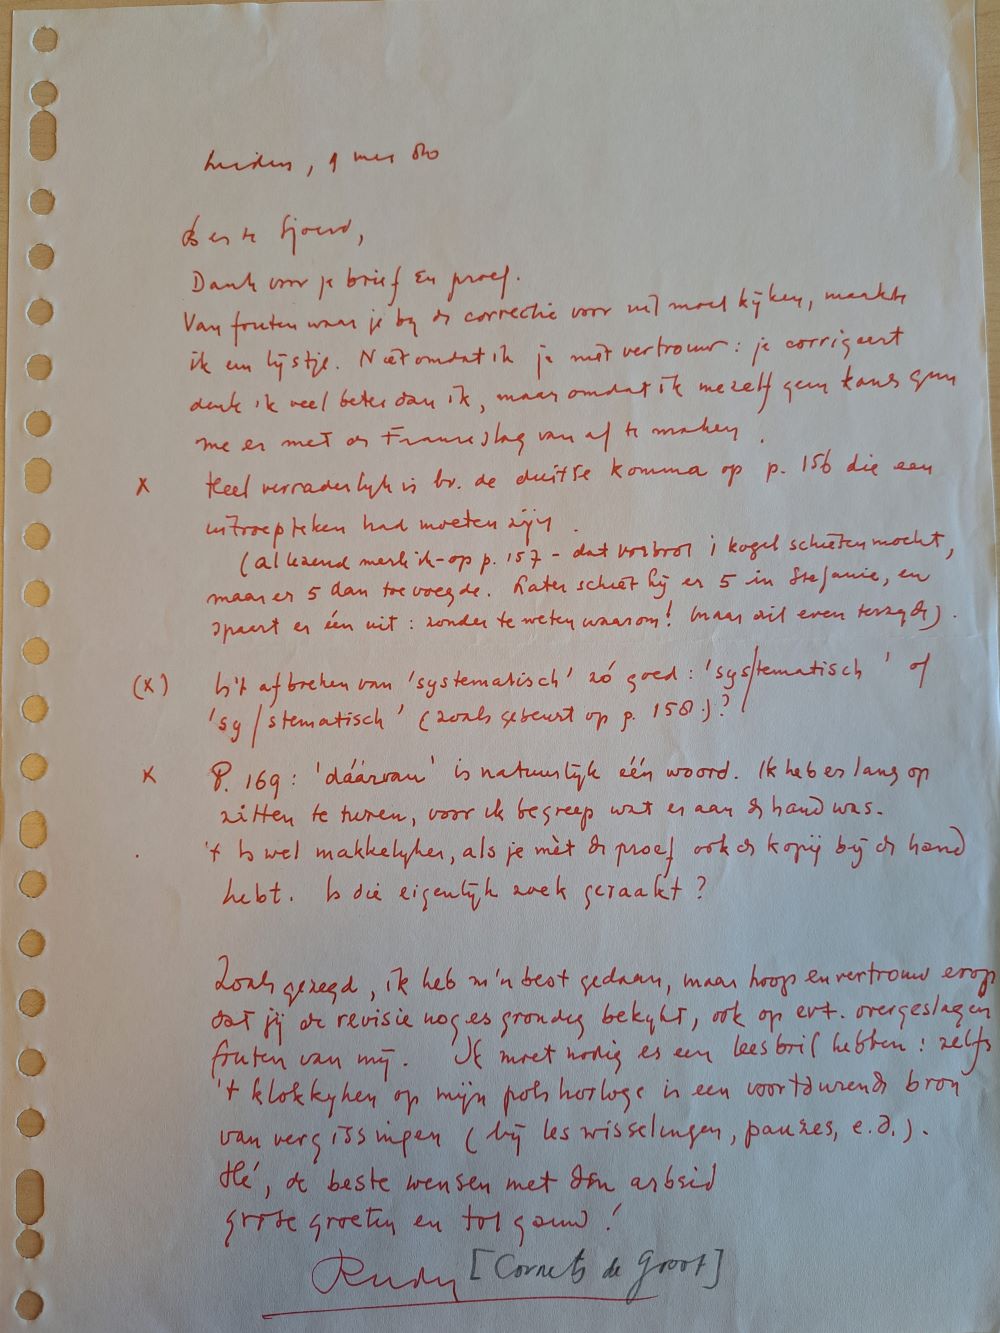 Leiden, 9 mei 80
Beste Sjoerd,
Dank voor je brief en proef.
Van fouten waar je bij de correctie voor uit moet kijken, maakte
ik een lijstje. Niet omdat ik je niet vertrouw: je corrigeert
denk ik veel beter dan ik, maar omdat ik mezelf geen kans gun
me er met de Franse slag van af te maken.
x Heel verraderlijk is bv. de duitse komma op p. 156 die een
uitroepteken had moeten zijn.
(Al lezend merk ik - op p. 157 - dat 1 kogel schieten mocht,
maar er 5 aan toevoegde. Later schiet hij er 5 in Stefanie, en
spaart er één uit: zonder te weten waarom! Maar dit even terzijde).
(x) Is 't afbreken van 'systematisch' zó goed: 'sys/tematisch' of
'sy/stematisch' (zoals gebeurt op p. 158.)?
x P. 169: 'dáárvan' is natuurlijk één woord. Ik heb er lang op
zitten te turen, voor ik begreep wat er aan de hand was.
't Is wel makkelijker, als je mèt de proef ook de kopij bij de hand
hebt. Is die eigenlijk zoek geraakt?
Zoals gezegd, ik heb m'n best gedaan, maar hoop en vertrouw erop
dat jij de revisie nog es grondig bekijkt, ook op evt. overgeslagen
fouten van mij. Ik moet nodig es een leesbril hebben: zelfs
't klokkijken op mijn polshorloge is een voortdurende bron
van vergissingen (bij leswisselingen, pauzes, e.d.).
Hé, de beste wensen met den arbeid
grote groeten en tot gauw!
Rudy [Cornets de Groot]